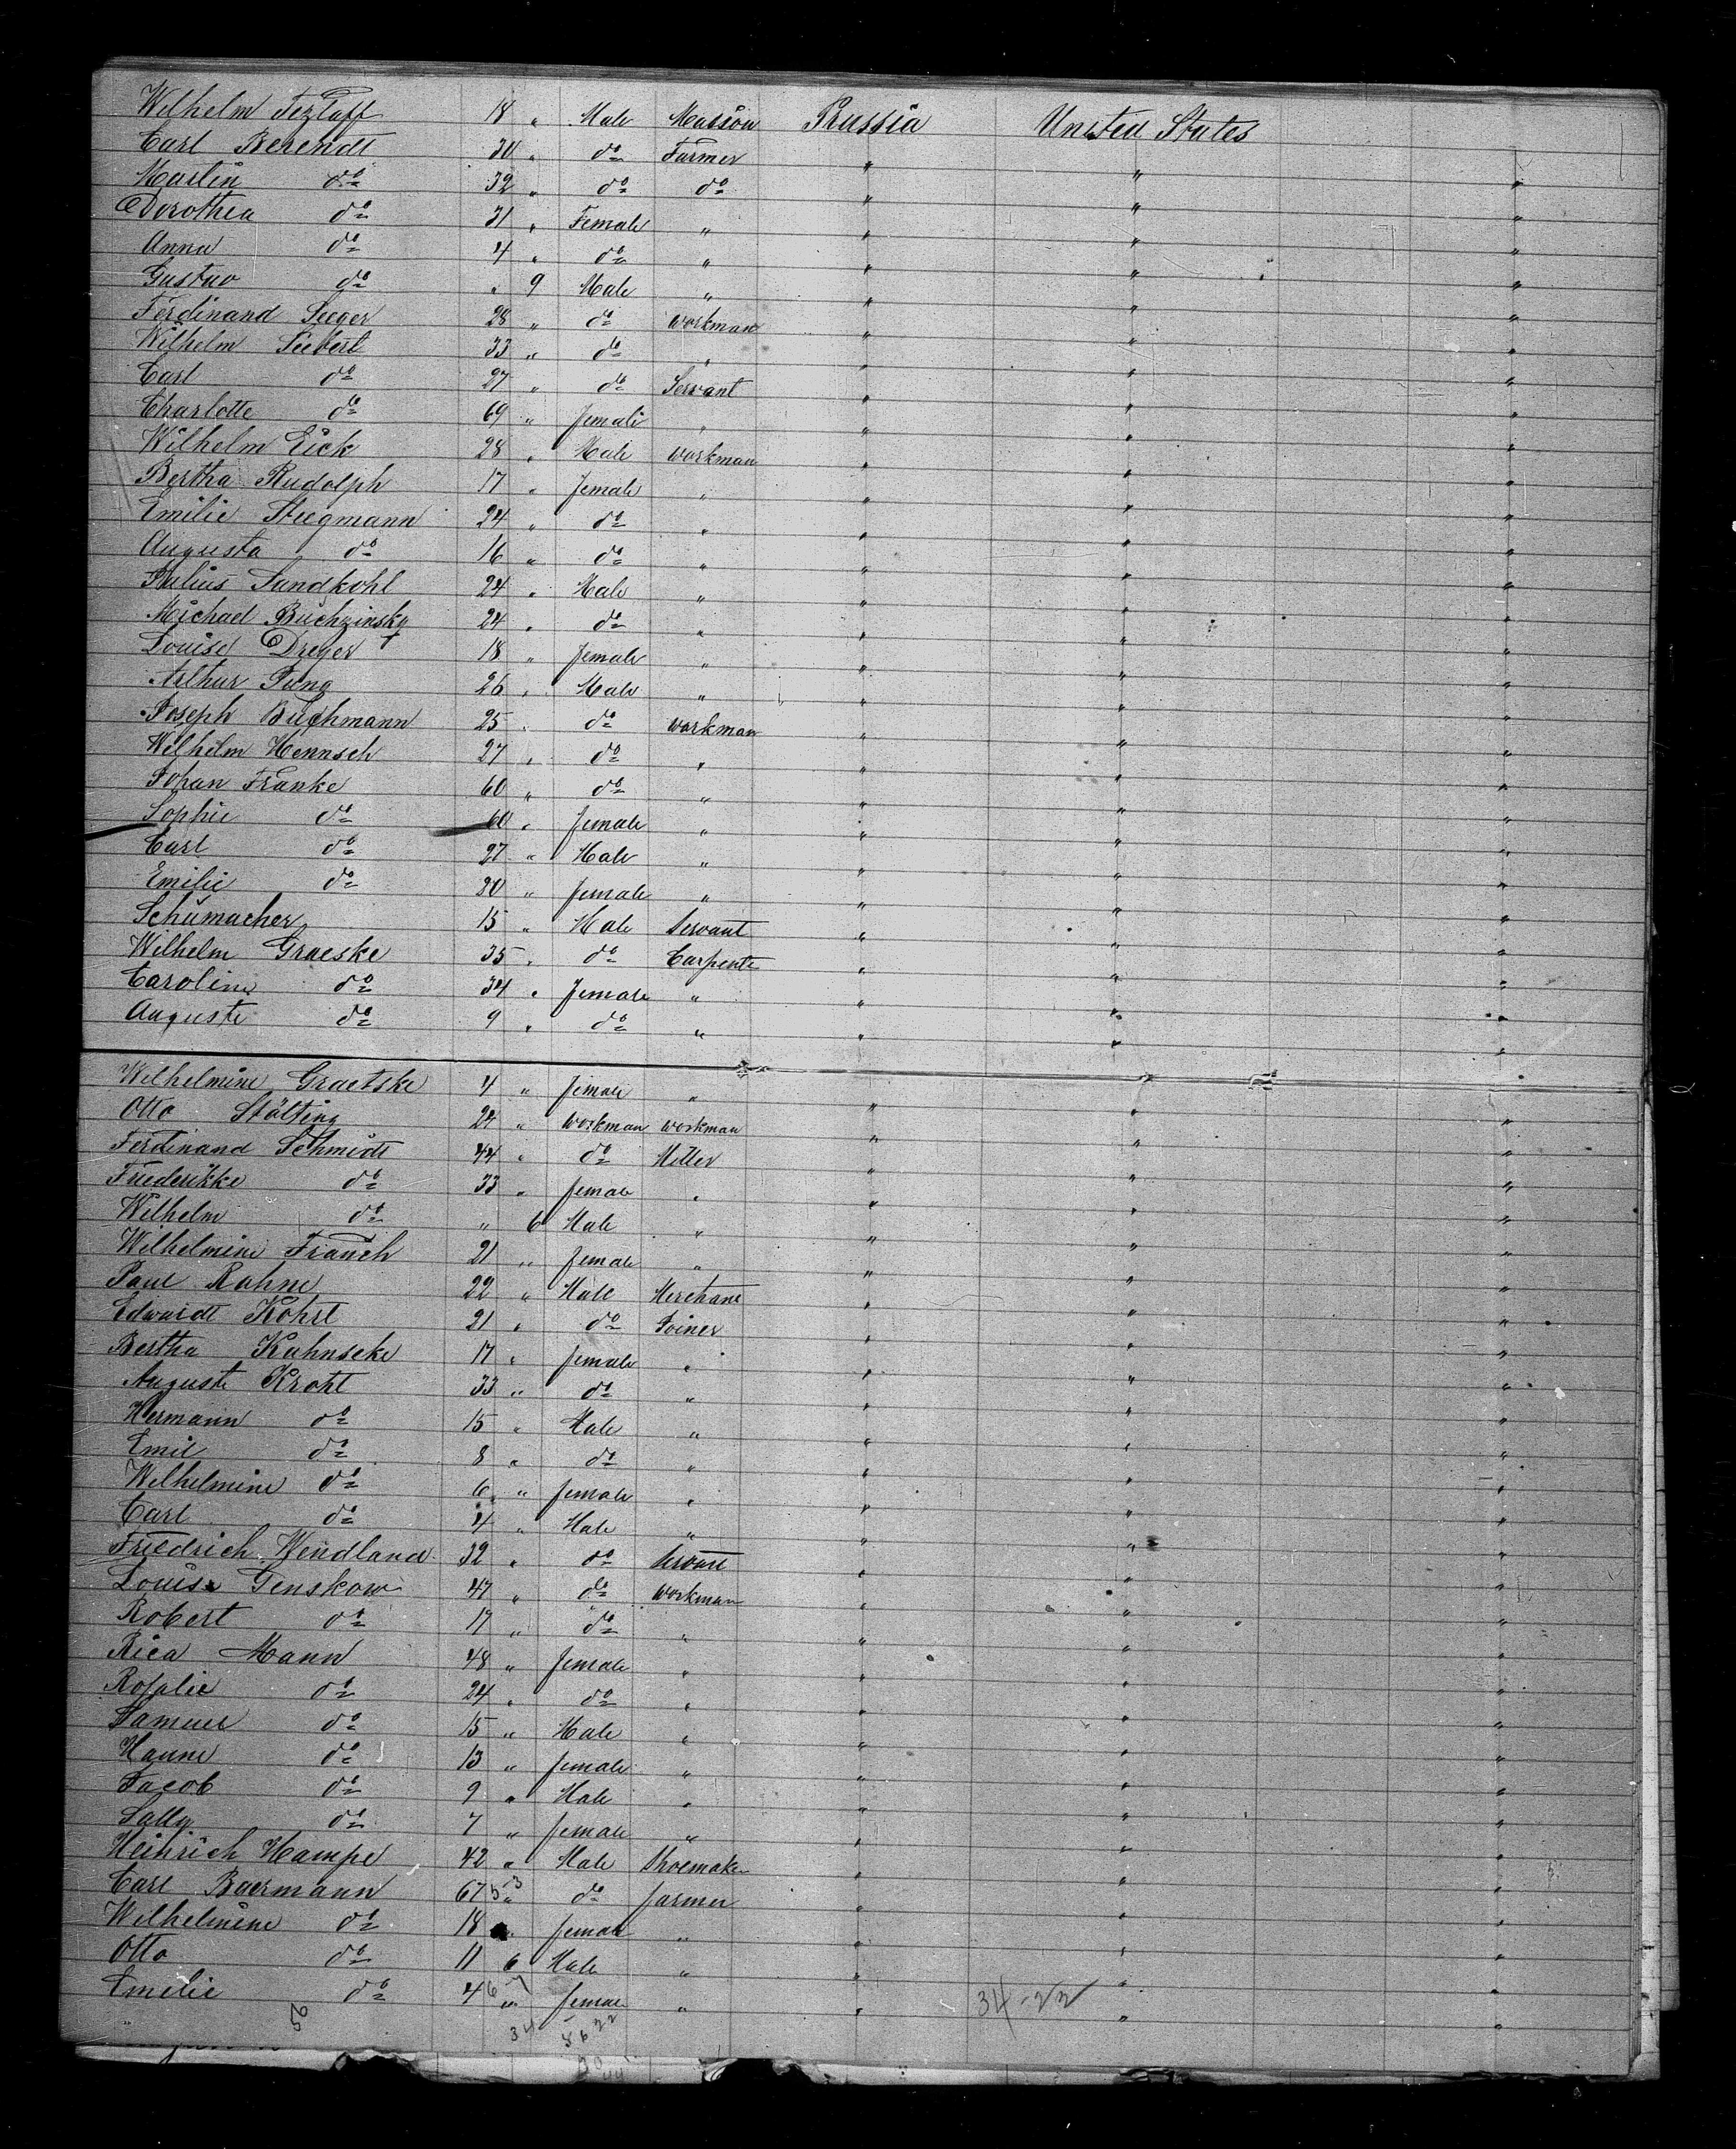 Wilhelm Tezlaff 18 " Male Mason Prussia United States
Carl Berendt 30 " do Farmer " " "
Martin do 32 " do do " " "
Dorothea do 31 " Female " " " "
Anna do 4 " do " " " "
Gustav do " 9 Male " " " "
Ferdinand Seeger 28 " do workman " " "
Wilhelm Siebert 33 " do " " " "
Carl do 27 " do Servant " " "
Charlotte do 69 " female " " " "
Wilhelm Eick 28 " Male workman " " "
Bertha Rudolph 17 " female " " " "
Emilie Stegmann 24 " do " " " "
Augusta do 16 " do " " " "
Julius Sandkohl 24 " Male " " " "
Michael Buchzinsky 24 " do " " " "
Louise Dreyer 18 " female " " " "
Arthur Jung 26 " Male " " " "
Joseph Buchmann 25 " do workman " " "
Wilhelm Hennsch 27 " do " " " "
Johan Franke 60 " do " " " "
Sophie do 60 " female " " " "
Carl do 27 " Male " " " "
Emilie do 20 " female " " " "
Schumacher 15 " Male Servant " " "
Wilhelm Graeske 35 " do Carpente " " "
Caroline do 34 " female " " " "
Auguste do 9 " do " " " "
Wilhelmine Graetske 4 " female " " " "
Otto Stölting 24 " workman workman " " "
Ferdinand Schmidt 44 " do Miller " " "
Friederikke do 33 " female " " " "
Wilhelm do " 6 Male " " " "
Wilhelmine Franch 21 " female " " " "
Paul Rahne 22 " Male Merchant " " "
Edwardt Kohrt 21 " do Joiner " " "
Bertha Kuhnseke 17 " female " " " "
Auguste Krohl 33 " do " " " "
Hermann do 15 " Male " " " "
Emil do 8 " do " " " "
Wilhelmine do 6 " female " " " "
Carl do 4 " Male " " " "
Friedrich Wendland 32 " do Servant " " "
Louise Genskow 47 " do workman " " "
Robert do 17 " do " " " "
Rica Mann 48 " female " " " "
Rosalie do 24 " do " " " "
Samuel do 15 " Male " " " "
Hanne do 13 " female " " " "
Jacob do 9 " Male " " " "
Sally do 7 " female " " " "
Heinrich Hampe 42 " Male Shoemaker " " "
Carl Baermann 67 53 " do farmer " " "
Wilhelmine do 18 " female " " " "
Otto do 11 6 Male " " " "
Emilie do 4 " female " " " "
25 34 8622 34-22